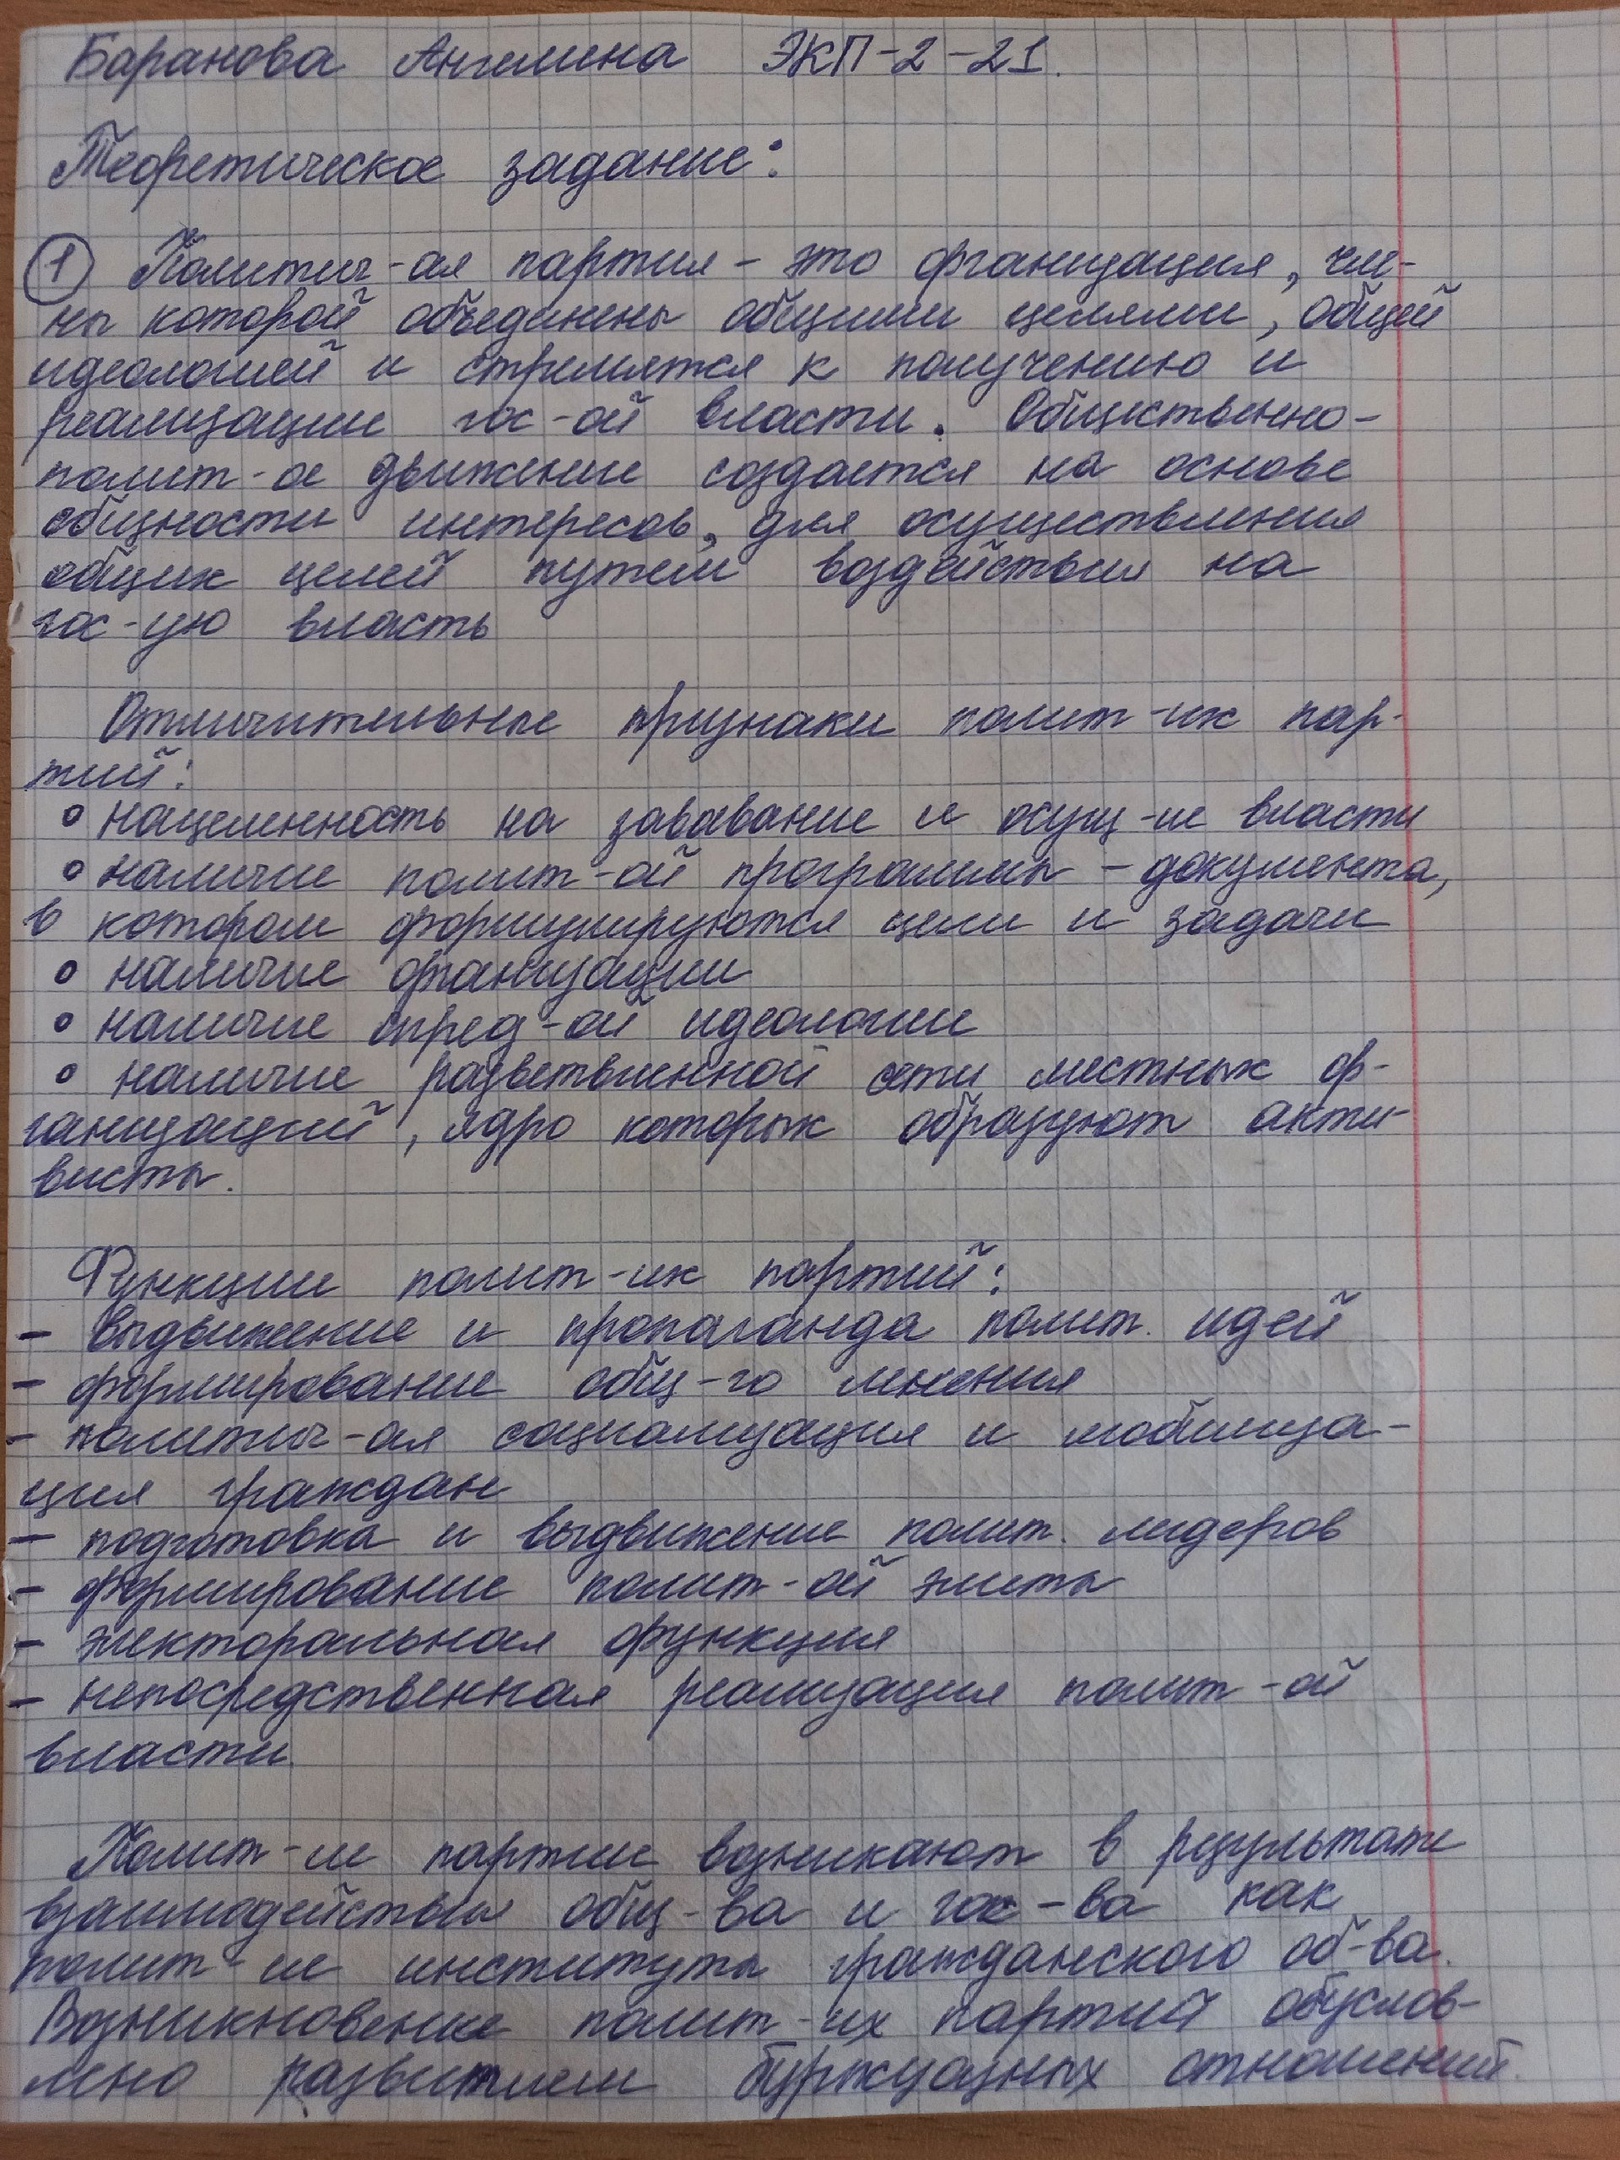 Баранова Ангелина ЭКП-2-21.
Теоретическое задание:
① Политич-ая партия - это организация, чле-
ны которой объединены общими целями, общей
идеологией и стремятся к получению и
реализации гос-ой власти. Общественно-
полит-ое движение создается на основе
общности интересов, для осуществления
общих целей путем воздействия на
гос-ую власть
Отличительные признаки полит-их пар-
тий:
• нацеленность на завоевание и осущ-ие власти
• наличие полит-ой программы - документа,
в котором формулируются цели и задачи
• наличие организации
• наличие опред-ой идеологии
• наличие разветвленной сети местных ор-
ганизаций, ядро которых образуют акти-
висты.
Функции полит-их партий:
- выдвижение и пропаганда полит. идей
- формирование общ-го мнения
- политич-ая социализация и мобилиза-
ция граждан
- подготовка и выдвижение полит. лидеров
- формирование полит-ой элиты
- электоральная функция
- непосредственная реализация полит-ой
власти.
Полит-ие партии возникают в результате
взаимодействия общ-ва и гос-ва как
полит-ие институты гражданского об-ва.
Возникновение полит-их партий обуслов-
лено развитием буржуазных отношений.